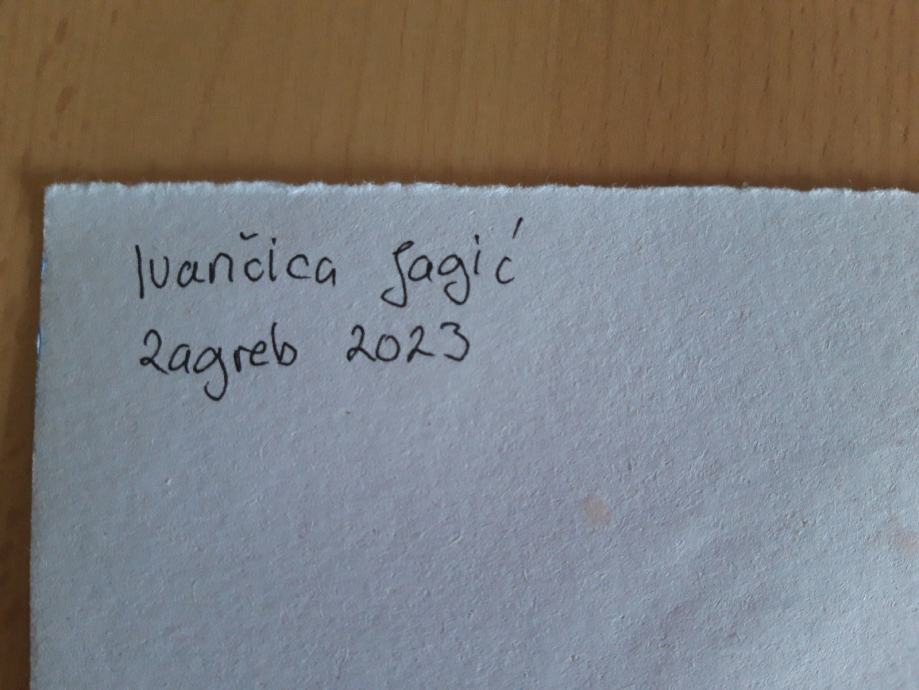 Ivančica Jagić
Zagreb 2023